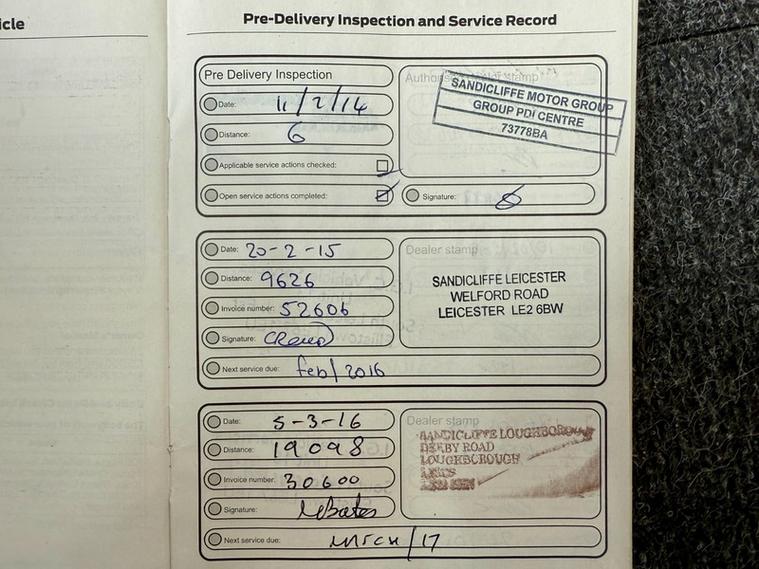 icle
Pre-Delivery Inspection and Service Record
Pre Delivery Inspection
Date: 11/2/14
Distance: 6
Applicable service actions checked:
Open service actions completed:
Motor stamp
SANDICLIFFE MOTOR GROUP
GROUP PDI CENTRE
73778BA
Signature:
Date: 20-2-15
Distance: 9626
Invoice number: 52606
Signature:
Next service due: feb/2016
Dealer stamp
SANDICLIFFE LEICESTER
WELFORD ROAD
LEICESTER LE2 6BW
Date: 5-3-16
Distance: 19098
Invoice number: 30600
Signature: Bates
Next service due: MARCH/17
Dealer stamp
SANDICLIFFE LOUGHBOROUGH
DERBY ROAD
LOUGHBOROUGH
LEICS